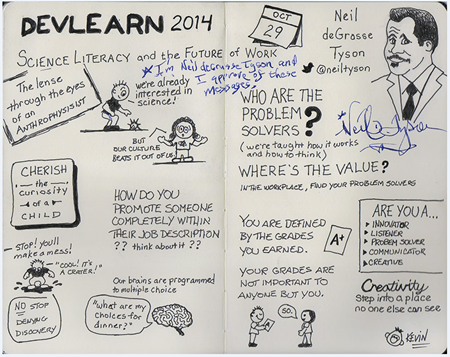 DEVLEARN 2014
SCIENCE LITERACY and the FUTURE OF WORK
* I'm Neil deGrasse Tyson and
I approve of these
messages.
The lense
through the eyes
of an
ANTHROPHYSICIST
we're already
interested in
science!
BUT
OUR CULTURE
BEATS IT OUT OF US
CHERISH
the
curiosity
of a
CHILD
HOW DO YOU
PROMOTE SOMEONE
COMPLETELY WITHIN
THEIR JOB DESCRIPTION
?? think about it ??
STOP! you'll
make a mess!
"COOL! IT'S
A CRATER!"
NO STOP
DENYING
DISCOVERY
Our brains are programmed
to multiple choice
"What are my
choices for
dinner?"
OCT
29
Neil
deGrasse
Tyson
@neiltyson
WHO ARE THE
PROBLEM
SOLVERS?
(we're taught how it works
and how to think)
Neil Tyson
WHERE'S THE VALUE?
IN THE WORKPLACE, FIND YOUR PROBLEM SOLVERS
YOU ARE DEFINED
BY THE GRADES
YOU EARNED.
A+
YOUR GRADES ARE
NOT IMPORTANT TO
ANYONE BUT YOU.
SO.
ARE YOU A...
INNOVATOR
LISTENER
PROBEM SOLVER
COMMUNICATOR
CREATIVE
Creativity
Step into a place
no one else can see
KEVIN